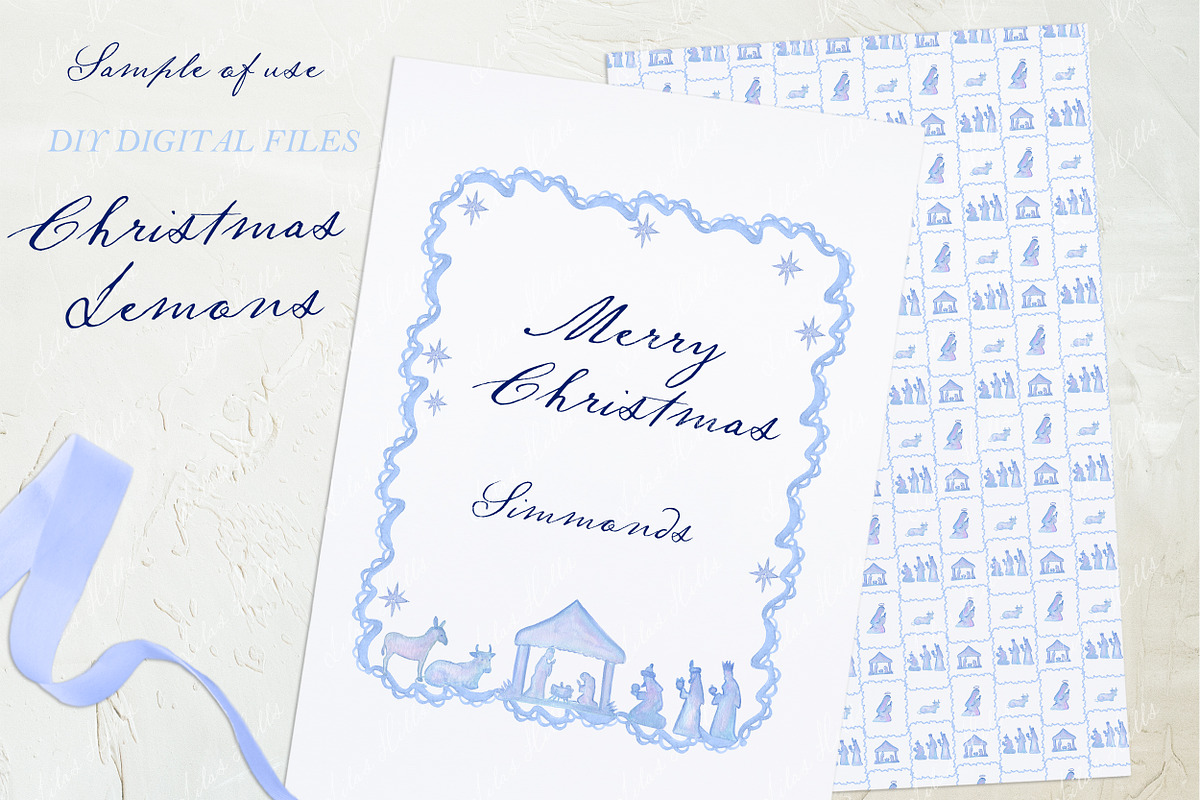 Sample of use
DIY DIGITAL FILES
Christmas
Lemons
Merry
Christmas
Simmonds